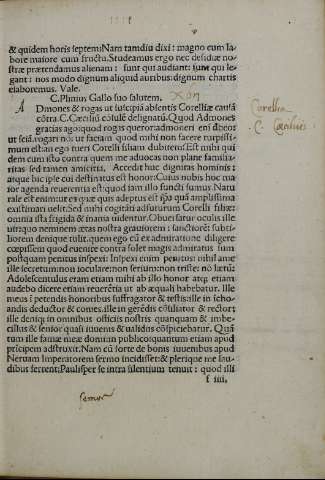 & quidem horis septem: Nam tamdiu dixi: magno cum la
bore maiore cum fructu. Studeamus ergo nec desidiæ no-
stræ prætendamus alienam: sunt qui audiant: sunt qui le-
gant: nos modo dignum aliquid auribus: dignum chartis
elaboremus. Vale.
C. Plinius Gallo suo salutem.
A Dmones & rogas ut suscipiā absentis Corelliæ causā
cōtra. C. Cæciliū cōsulē designatū. Quod Admones
gratias ago: quod rogas queror admoneri .eni debeo
ut sciā. rogari nō ut faciam quod mihi non facere turpissi-
mum est: an ego tueri Corelli filiam dubitem: Est mihi qui
dem cum isto contra quem me aduocas non plane familia-
ritas sed tamen amicitia. Accedit huc dignitas hominis:
atque hic ipse cui destinatus est honor. Cuius nobis hoc ma
ior agenda reuerentia est: quod iam illo functi sumus. Natu
rale est enim ut ea quæ quis adeptus est ipsa quā amplissima
existimari uelit. Sed mihi cogitāti adfuturum Corelli filiæ:
omnia ista frigida & inania uidentur. Obuersatur oculis ille
uir quo neminem ætas nostra grauiorem: sanctiorē: subti-
liorem denique tulit. quem ego cū ex admiratione diligere
cœpissem quod euenire contra solet magis admiratus sum
postquam penitus inspexi: Inspexi enim penitus: nihil a me
ille secretum: non ioculare: non serium: non triste: nō lætū:
Adolescentulus eram etiam mihi ab illo honor atq; etiam
audebo dicere etiam reuerētia ut ab æquali habebatur. Ille
meus i petendis honoribus suffragator & testis: ille in icho-
andis deductor & comes. ille in gerēdis cōsiliator & rector;
ille deniq; in omnibus officiis nostris quanquam & imbe-
cillus & senior quasi iuuenis & ualidus cōspiciebatur. Quā
tum ille famæ meæ domi: an publico: quantum etiam apud
prīcipem adstruxit. Nam cū forte de bonis iuuenibus apud
Neruam Imperatorem sermo incidisset: & plerique me lau-
dibus ferrent: Paulisper se intra silentium tenuit: quod illi
f iiii.
Corellia
C. Cæcilius